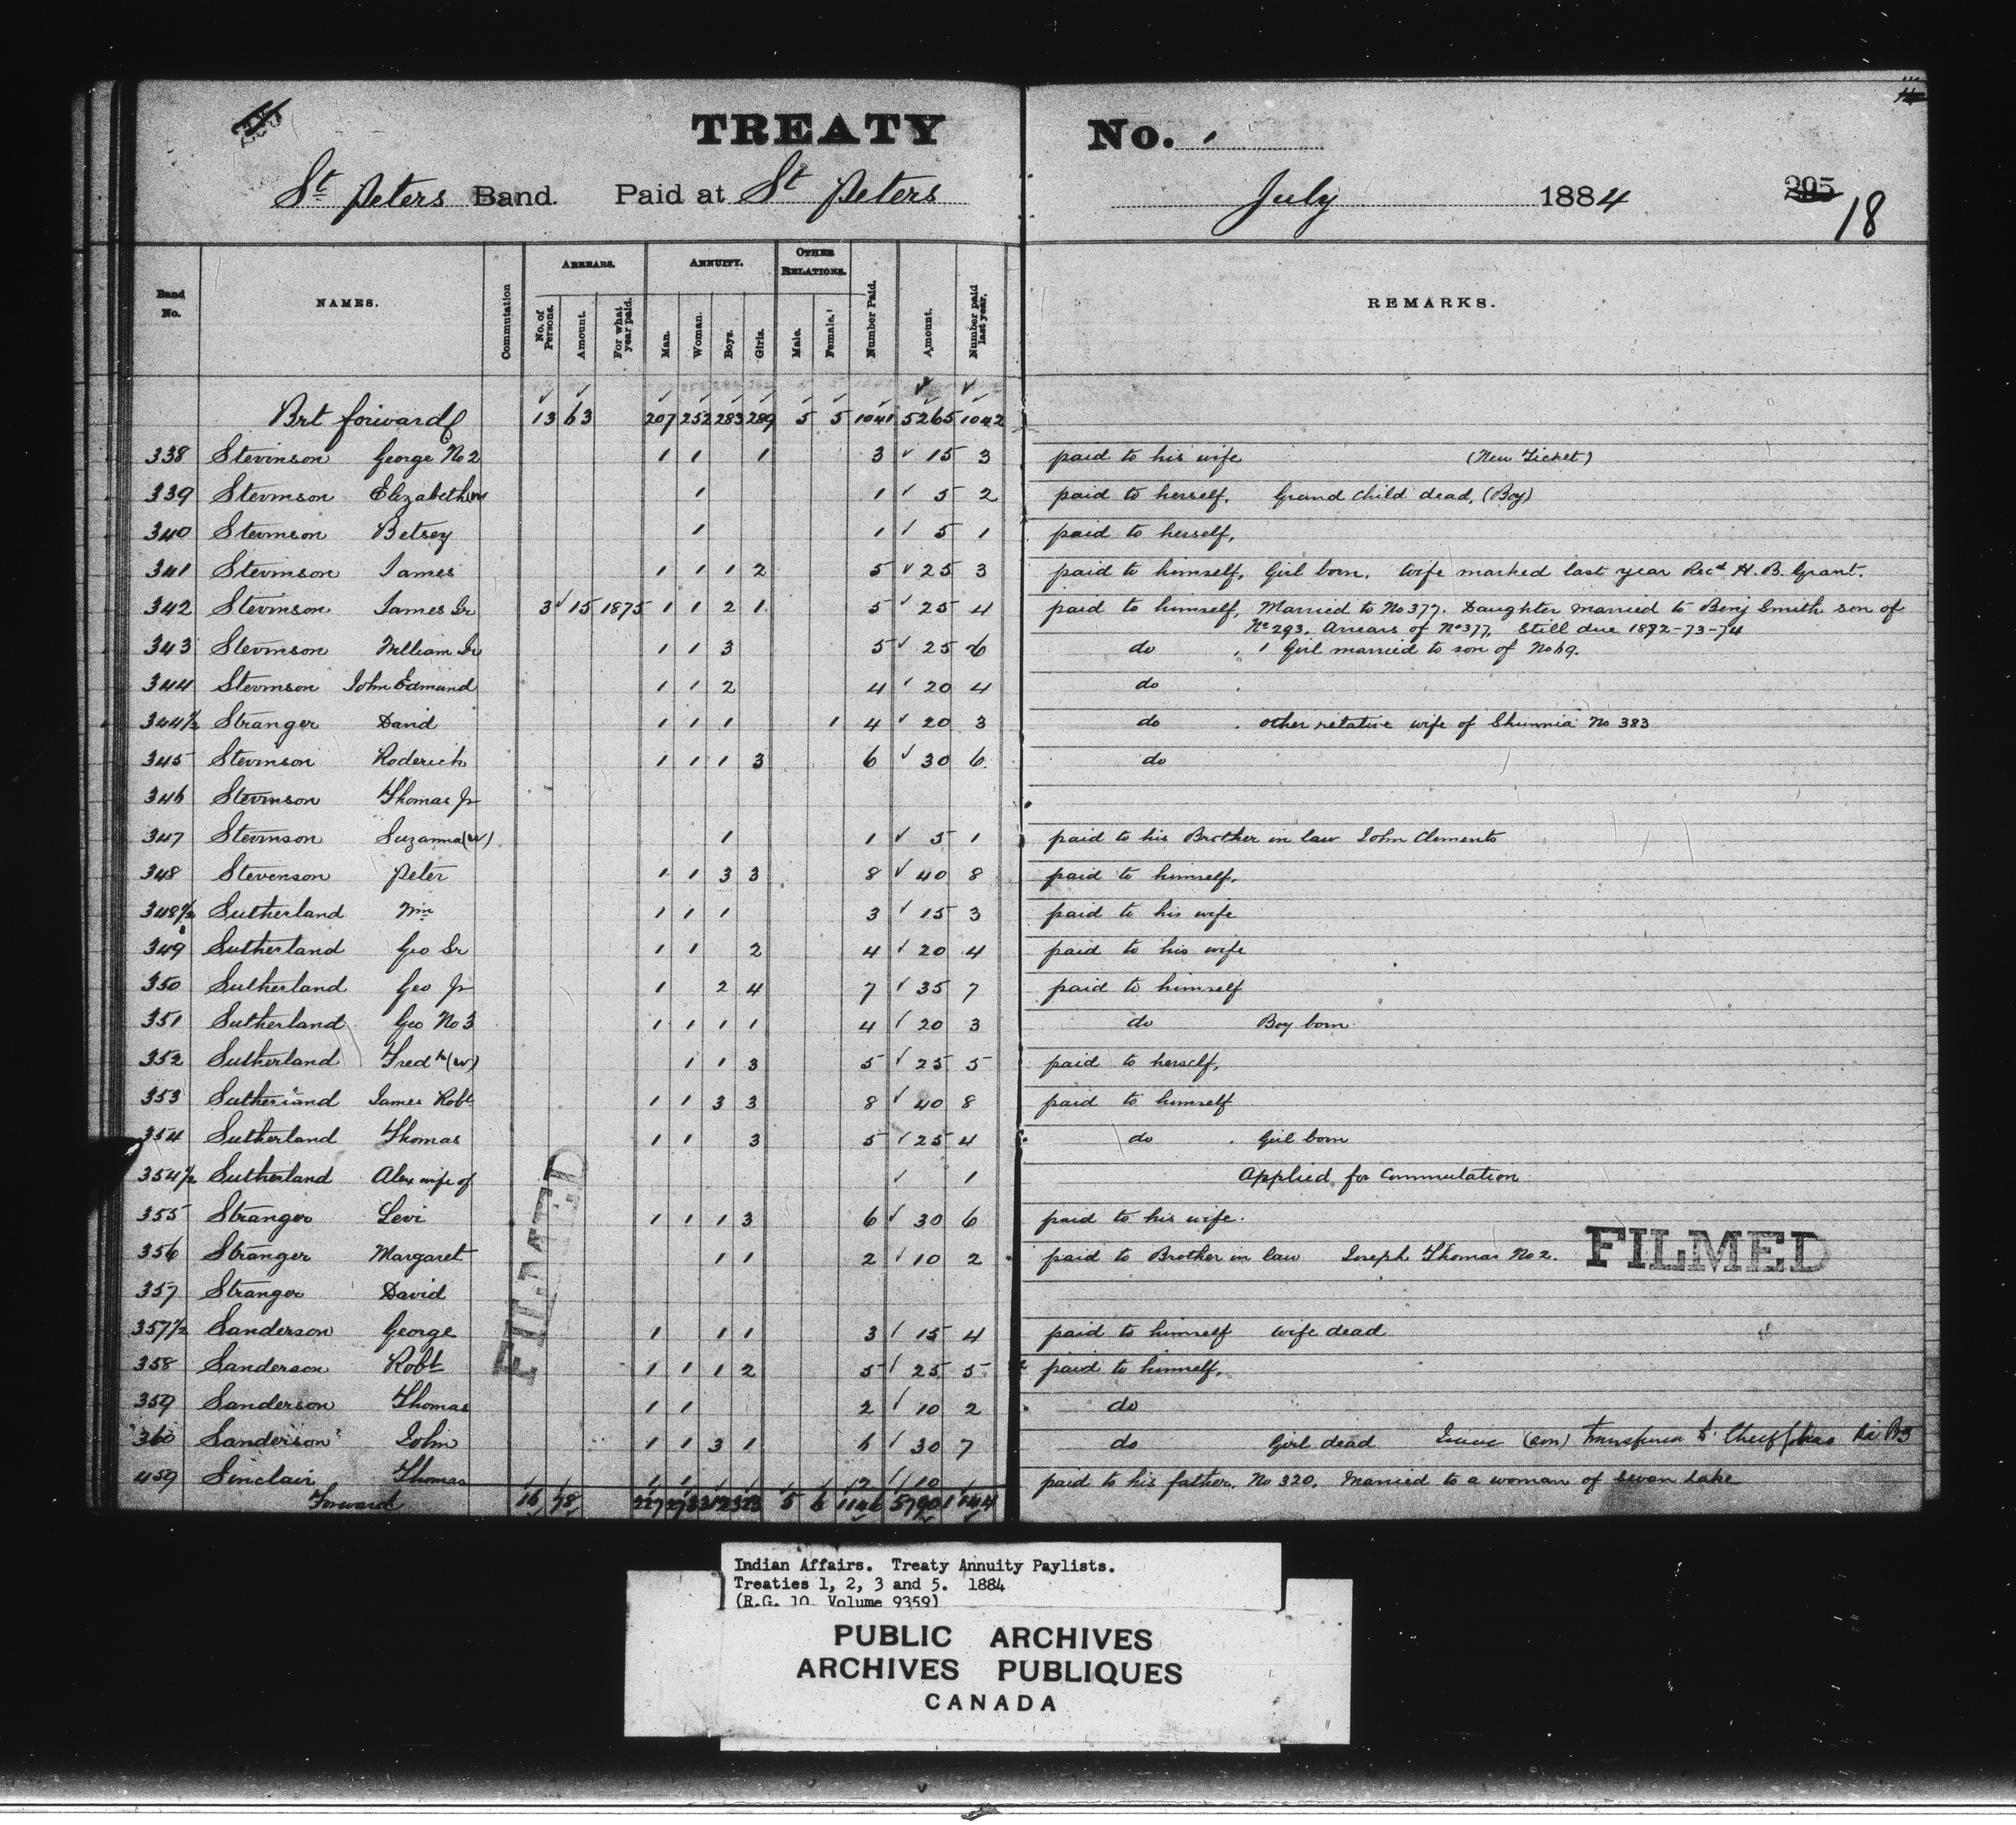 TREATY No. 1
St Peters Band. Paid at St Peters July 1884 205 18
Band No. NAMES. Commutation ARREARS. No. of Persons. Amount. For what year paid. ANNUITY. Man. Woman. Boys. Girls. OTHER RELATIONS. Male. Female. Number Paid. Amount. Number paid last year. REMARKS.
Brt forward 13 63 207 252 283 289 5 5 1041 5265 1042
338 Stevinson George No 2 1 1 1 3 ✓ 15 3 paid to his wife (New Ticket)
339 Stevinson Elizabeth (w) 1 1 ✓ 5 2 paid to herself. Grand Child dead, (Boy)
340 Stevinson Betsey 1 1 ✓ 5 1 paid to herself,
341 Stevinson James 1 1 1 2 5 ✓ 25 3 paid to himself, Girl born. Wife marked last year Recd H. B. Grant.
342 Stevinson James Sr 3 ✓ 15 1875 1 1 2 1 5 ✓ 25 4 paid to himself, Married to No 377. Daughter married to Benj Smith son of
No 293. Arrears of No 377, Still due 1872-73-74
343 Stevinson William Sr 1 1 3 5 ✓ 25 6 do 1 Girl married to son of No 69.
344 Stevinson John Edmund 1 1 2 4 ✓ 20 4 do
344½ Stranger David 1 1 1 1 4 ✓ 20 3 do other relative wife of No 383
345 Stevinson Roderick 1 1 1 3 6 ✓ 30 6 do
346 Stevinson Thomas Jr
347 Stevinson Suzanna (w) 1 1 ✓ 5 1 paid to his Brother in law John Clements
348 Stevenson Peter 1 1 3 3 8 ✓ 40 8 paid to himself.
348½ Sutherland Wm 1 1 1 3 ✓ 15 3 paid to his wife
349 Sutherland Geo Sr 1 1 2 4 ✓ 20 4 paid to his wife
350 Sutherland Geo Jr 1 2 4 7 ✓ 35 7 paid to himself
351 Sutherland Geo No 3 1 1 1 1 4 ✓ 20 3 do Boy born.
352 Sutherland Fredk (w) 1 1 3 5 ✓ 25 5 paid to herself,
353 Sutherland James Robt 1 1 3 3 8 ✓ 40 8 paid to himself
354 Sutherland Thomas 1 1 3 5 ✓ 25 4 do Girl born
354½ Sutherland Alex wife of ✓ 1 Applied for Commutation
355 Stranger Levi 1 1 1 3 6 ✓ 30 6 paid to his wife.
356 Stranger Margaret 1 1 2 ✓ 10 2 paid to Brother in law Joseph Thomas No 2.
FILMED
FILMED
357 Stranger David
357½ Sanderson George 1 1 1 3 ✓ 15 4 paid to himself Wife dead
358 Sanderson Robt 1 1 1 2 5 ✓ 25 5 paid to himself,
359 Sanderson Thomas 1 1 2 ✓ 10 2 do
360 Sanderson John 1 1 3 1 6 ✓ 30 7 do Girl dead Isaac (son)
459 Sinclair Thomas 1 1 2 ✓ 10 paid to his father, No 320, Married to a woman of Swan Lake
Forward 16 78 227 5 6 1146 5790 1144
Indian Affairs. Treaty Annuity Paylists.
Treaties 1, 2, 3 and 5. 1884
(R.G. 10 Volume 9359)
PUBLIC ARCHIVES
ARCHIVES PUBLIQUES
CANADA